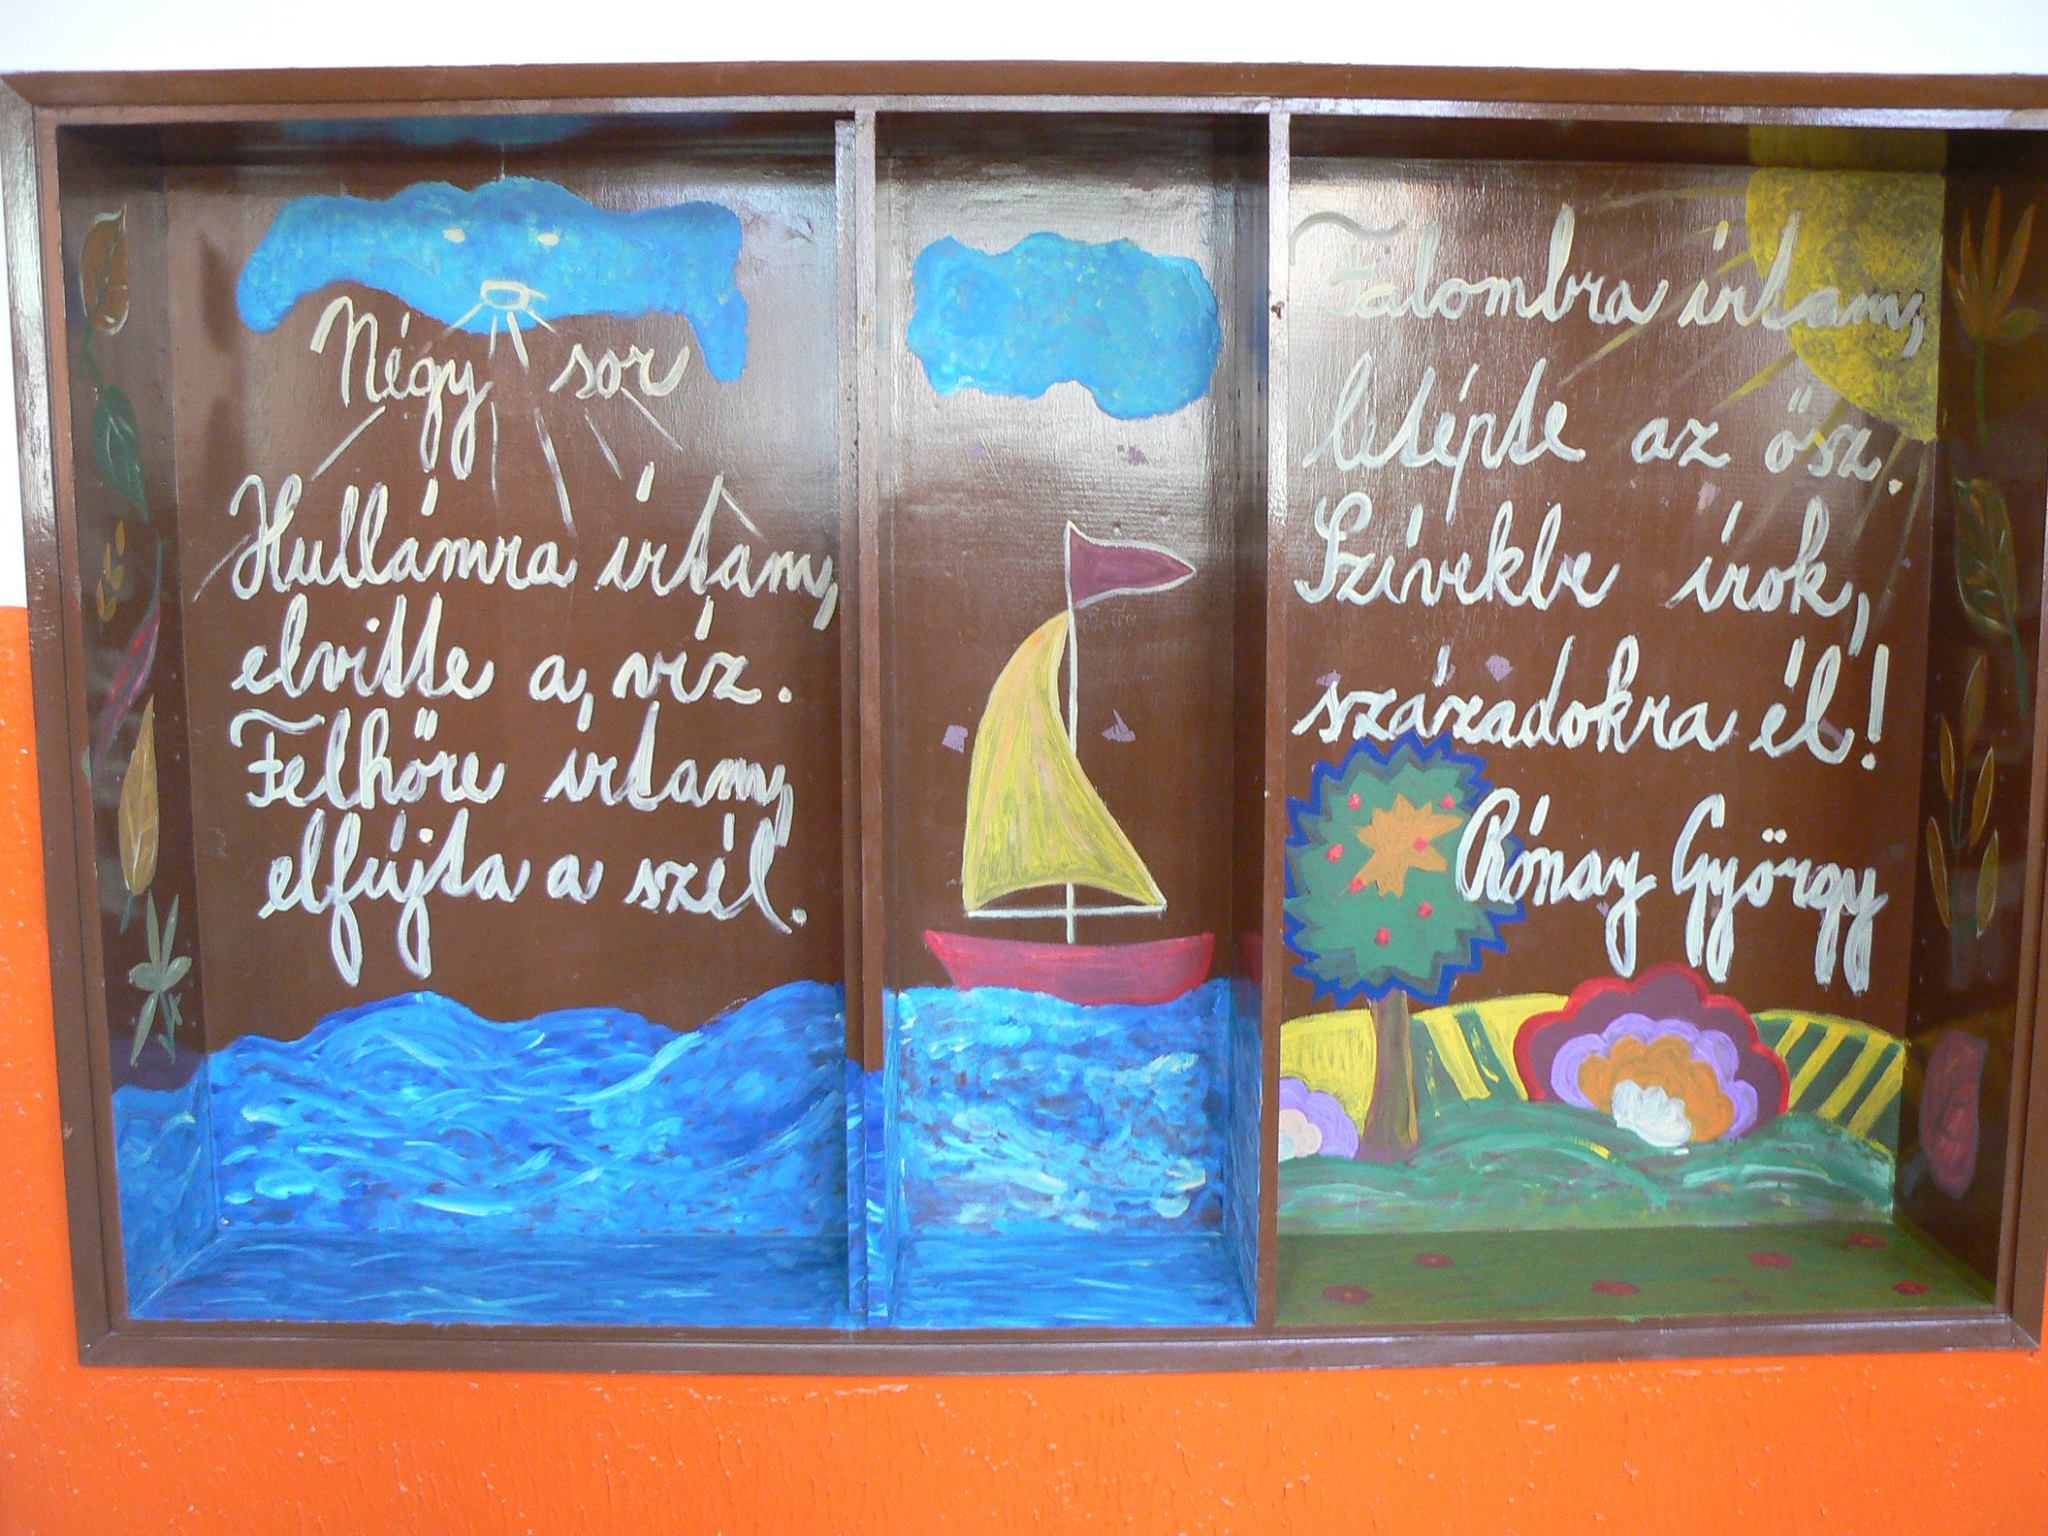 Négy sor
Hullámra írtam,
elvitte a víz.
Felhőre írtam,
elfújta a szél.
Falombra írtam,
letépte az ősz.
Szívekbe írok,
századokra él!
Rónay György